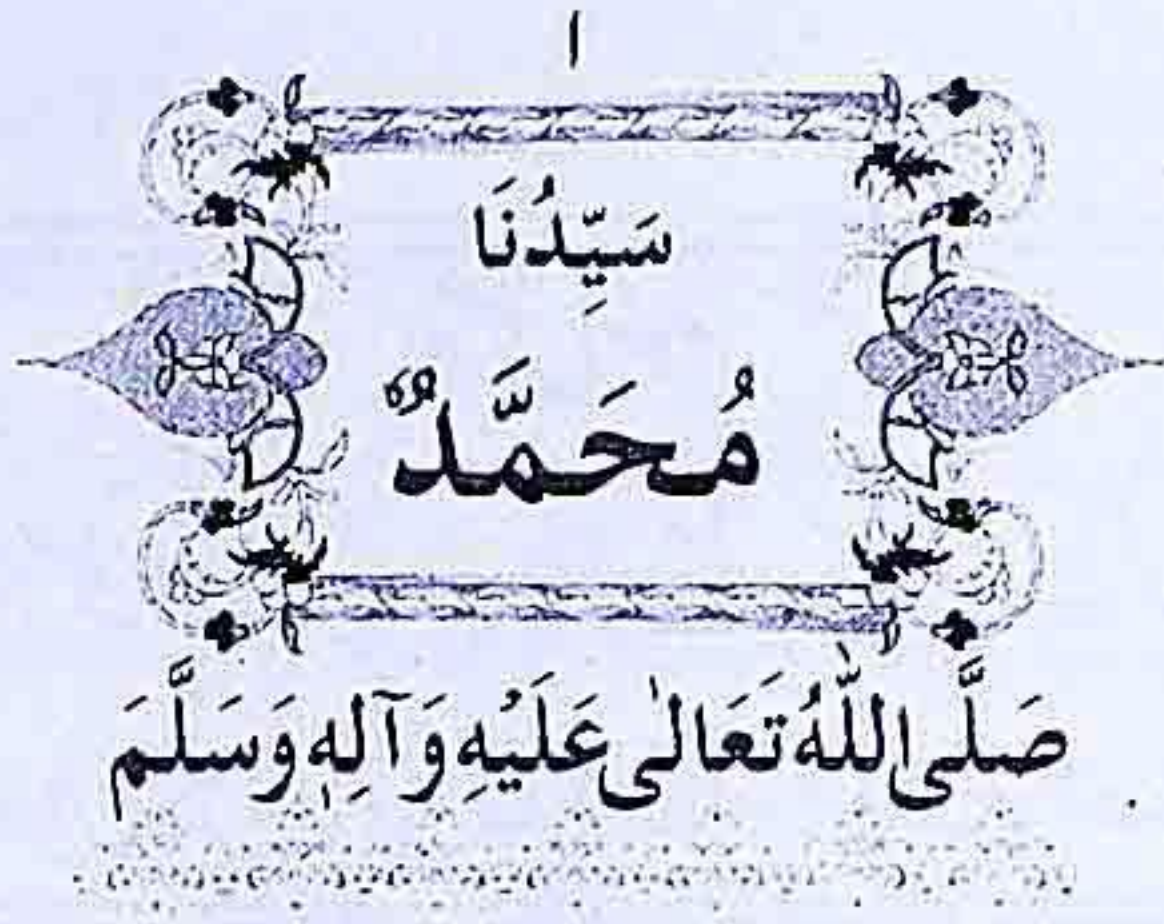 ۱
سَيِّدُنَا
مُحَمَّدٌ
صَلَّى اللّٰهُ تَعَالٰى عَلَيْهِ وَآلِهٖ وَسَلَّمَ